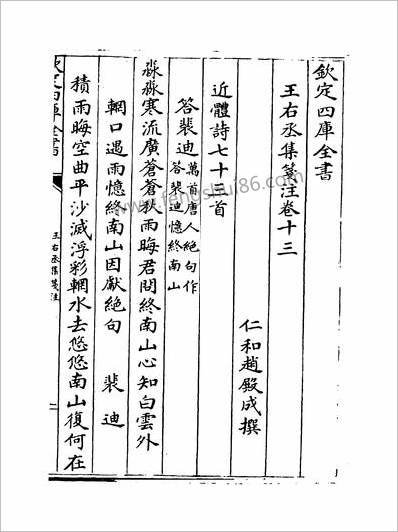 欽定四庫全書
王右丞集箋注卷十三
仁和趙殿成撰
近體詩七十三首
答裴迪萬首唐人絶句作
答裴迪憶終南山
淼淼寒流廣蒼蒼秋雨晦君問終南山心知白雲外
輞口遇雨憶終南山因獻絶句 裴迪
積雨晦空曲平沙滅浮彩輞水去悠悠南山復何在
欽定四庫全書
王右丞集箋注
www.fengshui86.com